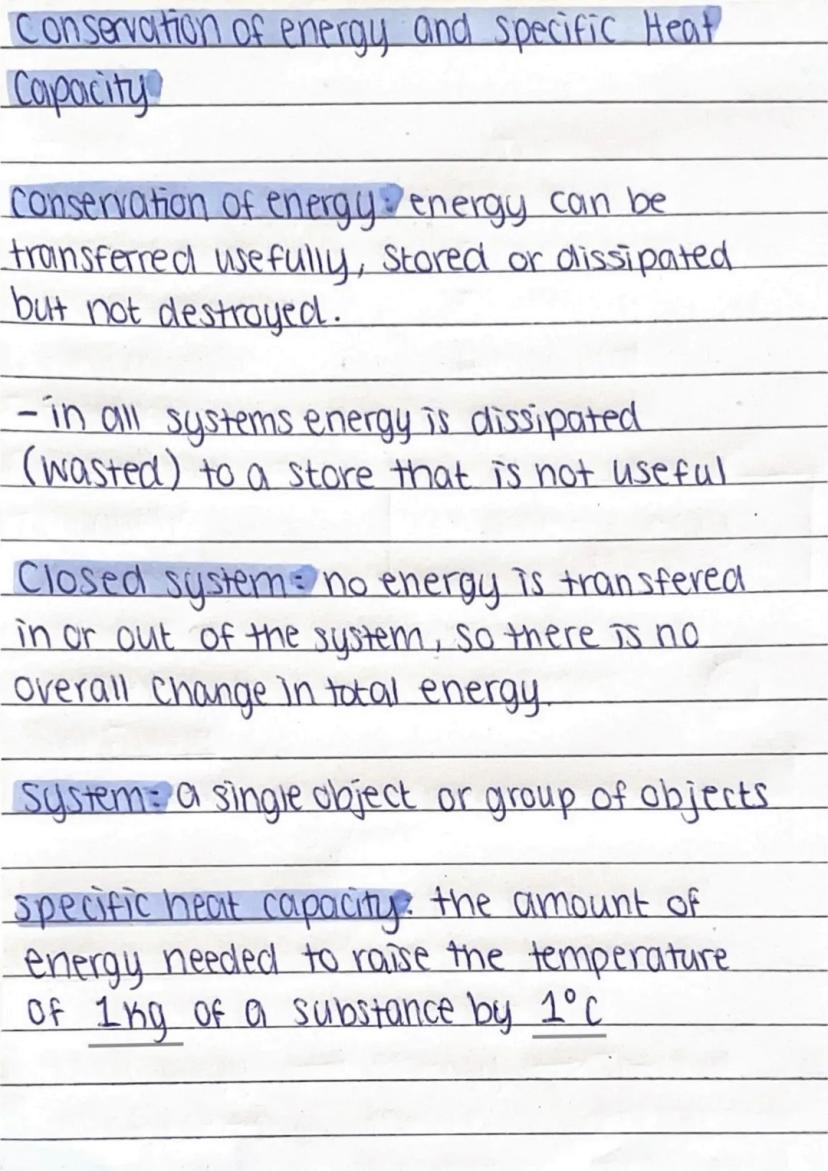 Conservation of energy and specific Heat
Capacity
conservation of energy: energy can be
transferred usefully, stored or dissipated
but not destroyed.
- in all systems energy is dissipated
(wasted) to a store that is not useful
Closed system: no energy is transfered
in or out of the system, so there is no
overall change in total energy.
system: a single object or group of objects
specific heat capacity: the amount of
energy needed to raise the temperature
of 1kg of a substance by 1°C